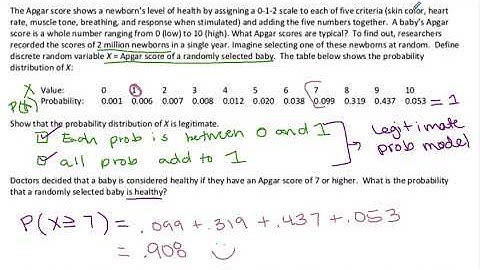 The Apgar score shows a newborn's level of health by assigning a 0-1-2 scale to each of five criteria (skin color, heart
rate, muscle tone, breathing, and response when stimulated) and adding the five numbers together. A baby's Apgar
score is a whole number ranging from 0 (low) to 10 (high). What Apgar scores are typical? To find out, researchers
recorded the scores of 2 million newborns in a single year. Imagine selecting one of these newborns at random. Define
discrete random variable X = Apgar score of a randomly selected baby. The table below shows the probability
distribution of X:
X Value: 0 1 2 3 4 5 6 7 8 9 10
P(X) Probability: 0.001 0.006 0.007 0.008 0.012 0.020 0.038 0.099 0.319 0.437 0.053 = 1
Show that the probability distribution of X is legitimate.
Each prob is between 0 and 1
all prob add to 1
legitimate
prob model
Doctors decided that a baby is considered healthy if they have an Apgar score of 7 or higher. What is the probability
that a randomly selected baby is healthy?
P(X≥7) = .099 + .319 + .437 + .053
= .908